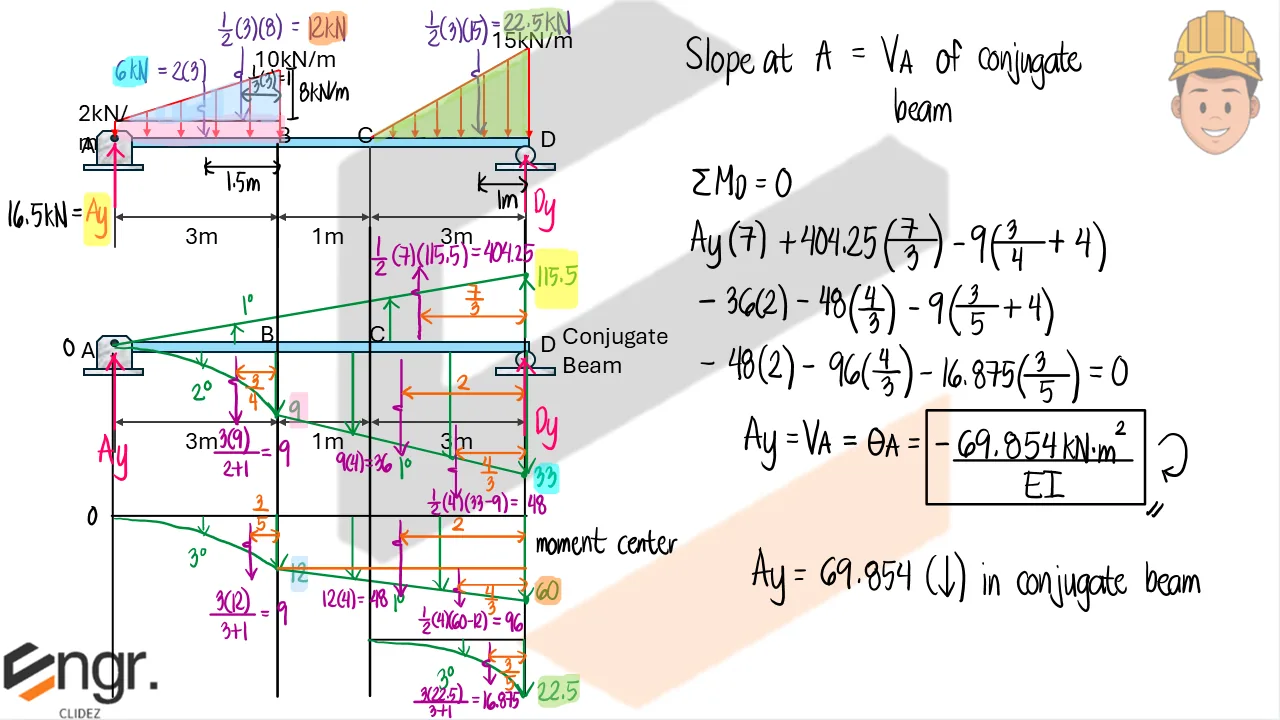 ½(3)(8) = 12kN
½(3)(15) = 22.5kN
15kN/m
6kN = 2(3)
10kN/m
8kN/m
2kN/
m
A
B
C
D
1.5m
1m
16.5kN = Ay
Dy
3m
1m
3m
½(7)(115.5) = 404.25
115.5
7/3
1°
0
A
B
C
D
Conjugate
Beam
2°
3/4
9
2
Ay
3m
1m
3m
Dy
3(9)/(2+1) = 9
9(4)=36
1°
4/3
33
½(4)(33-9) = 48
0
3/5
2
moment center
3°
12
60
3(12)/(3+1) = 9
12(4) = 48
1°
4/3
½(4)(60-12) = 96
3°
3/5
22.5
3(22.5)/(3+1) = 16.875
Engr.
CLIDEZ
Slope at A = VA of conjugate
beam
ΣMD = 0
Ay(7) + 404.25(7/3) - 9(3/4 + 4)
- 36(2) - 48(4/3) - 9(3/5 + 4)
- 48(2) - 96(4/3) - 16.875(3/5) = 0
Ay = VA = θA = - 69.854 kN·m²/EI
Ay = 69.854 (↓) in conjugate beam